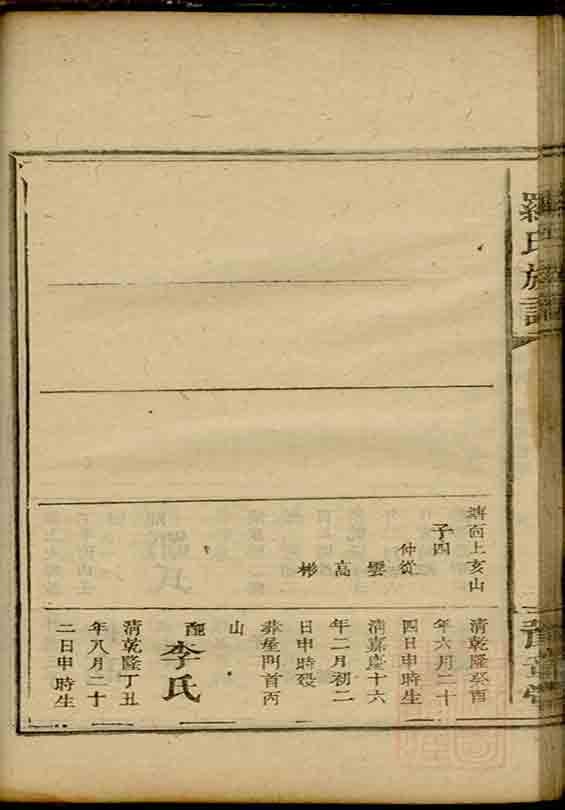 羅氏族譜
豫章堂
塘面上亥山
子四
仲從
雲
高
彬
清乾隆癸酉
年六月二十
四日申時生
清嘉慶十六
年二月初二
日申時殁
葬屋門首丙
山
配李氏
清乾隆丁丑
年八月二十
二日申時生